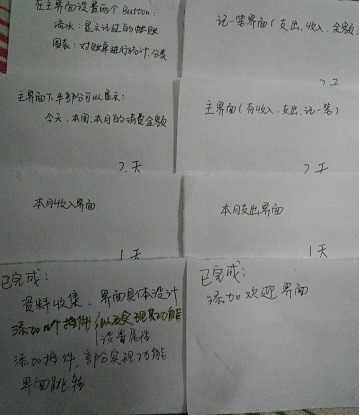 在主界面设置两个Button.
流水:显示记账的
图表:对账单进行统计,分类
记一笔界面(支出,收入,金额)
主界面下半部分可以显示:
今天,本周,本月的消费金额
2天
主界面(有收入、支出、记一笔)
2天
本月收入界面
1天
本月支出界面
1天
已完成:
资料收集、界面具体设计
添加
设置属性
添加控件,部分实现功能
界面跳转
已完成:
添加欢迎界面